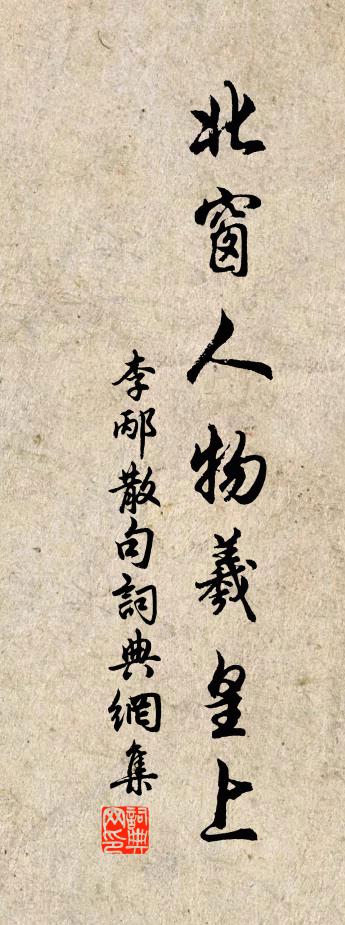 北窗人物羲皇上
李邴散句詞典網集
詞典网印